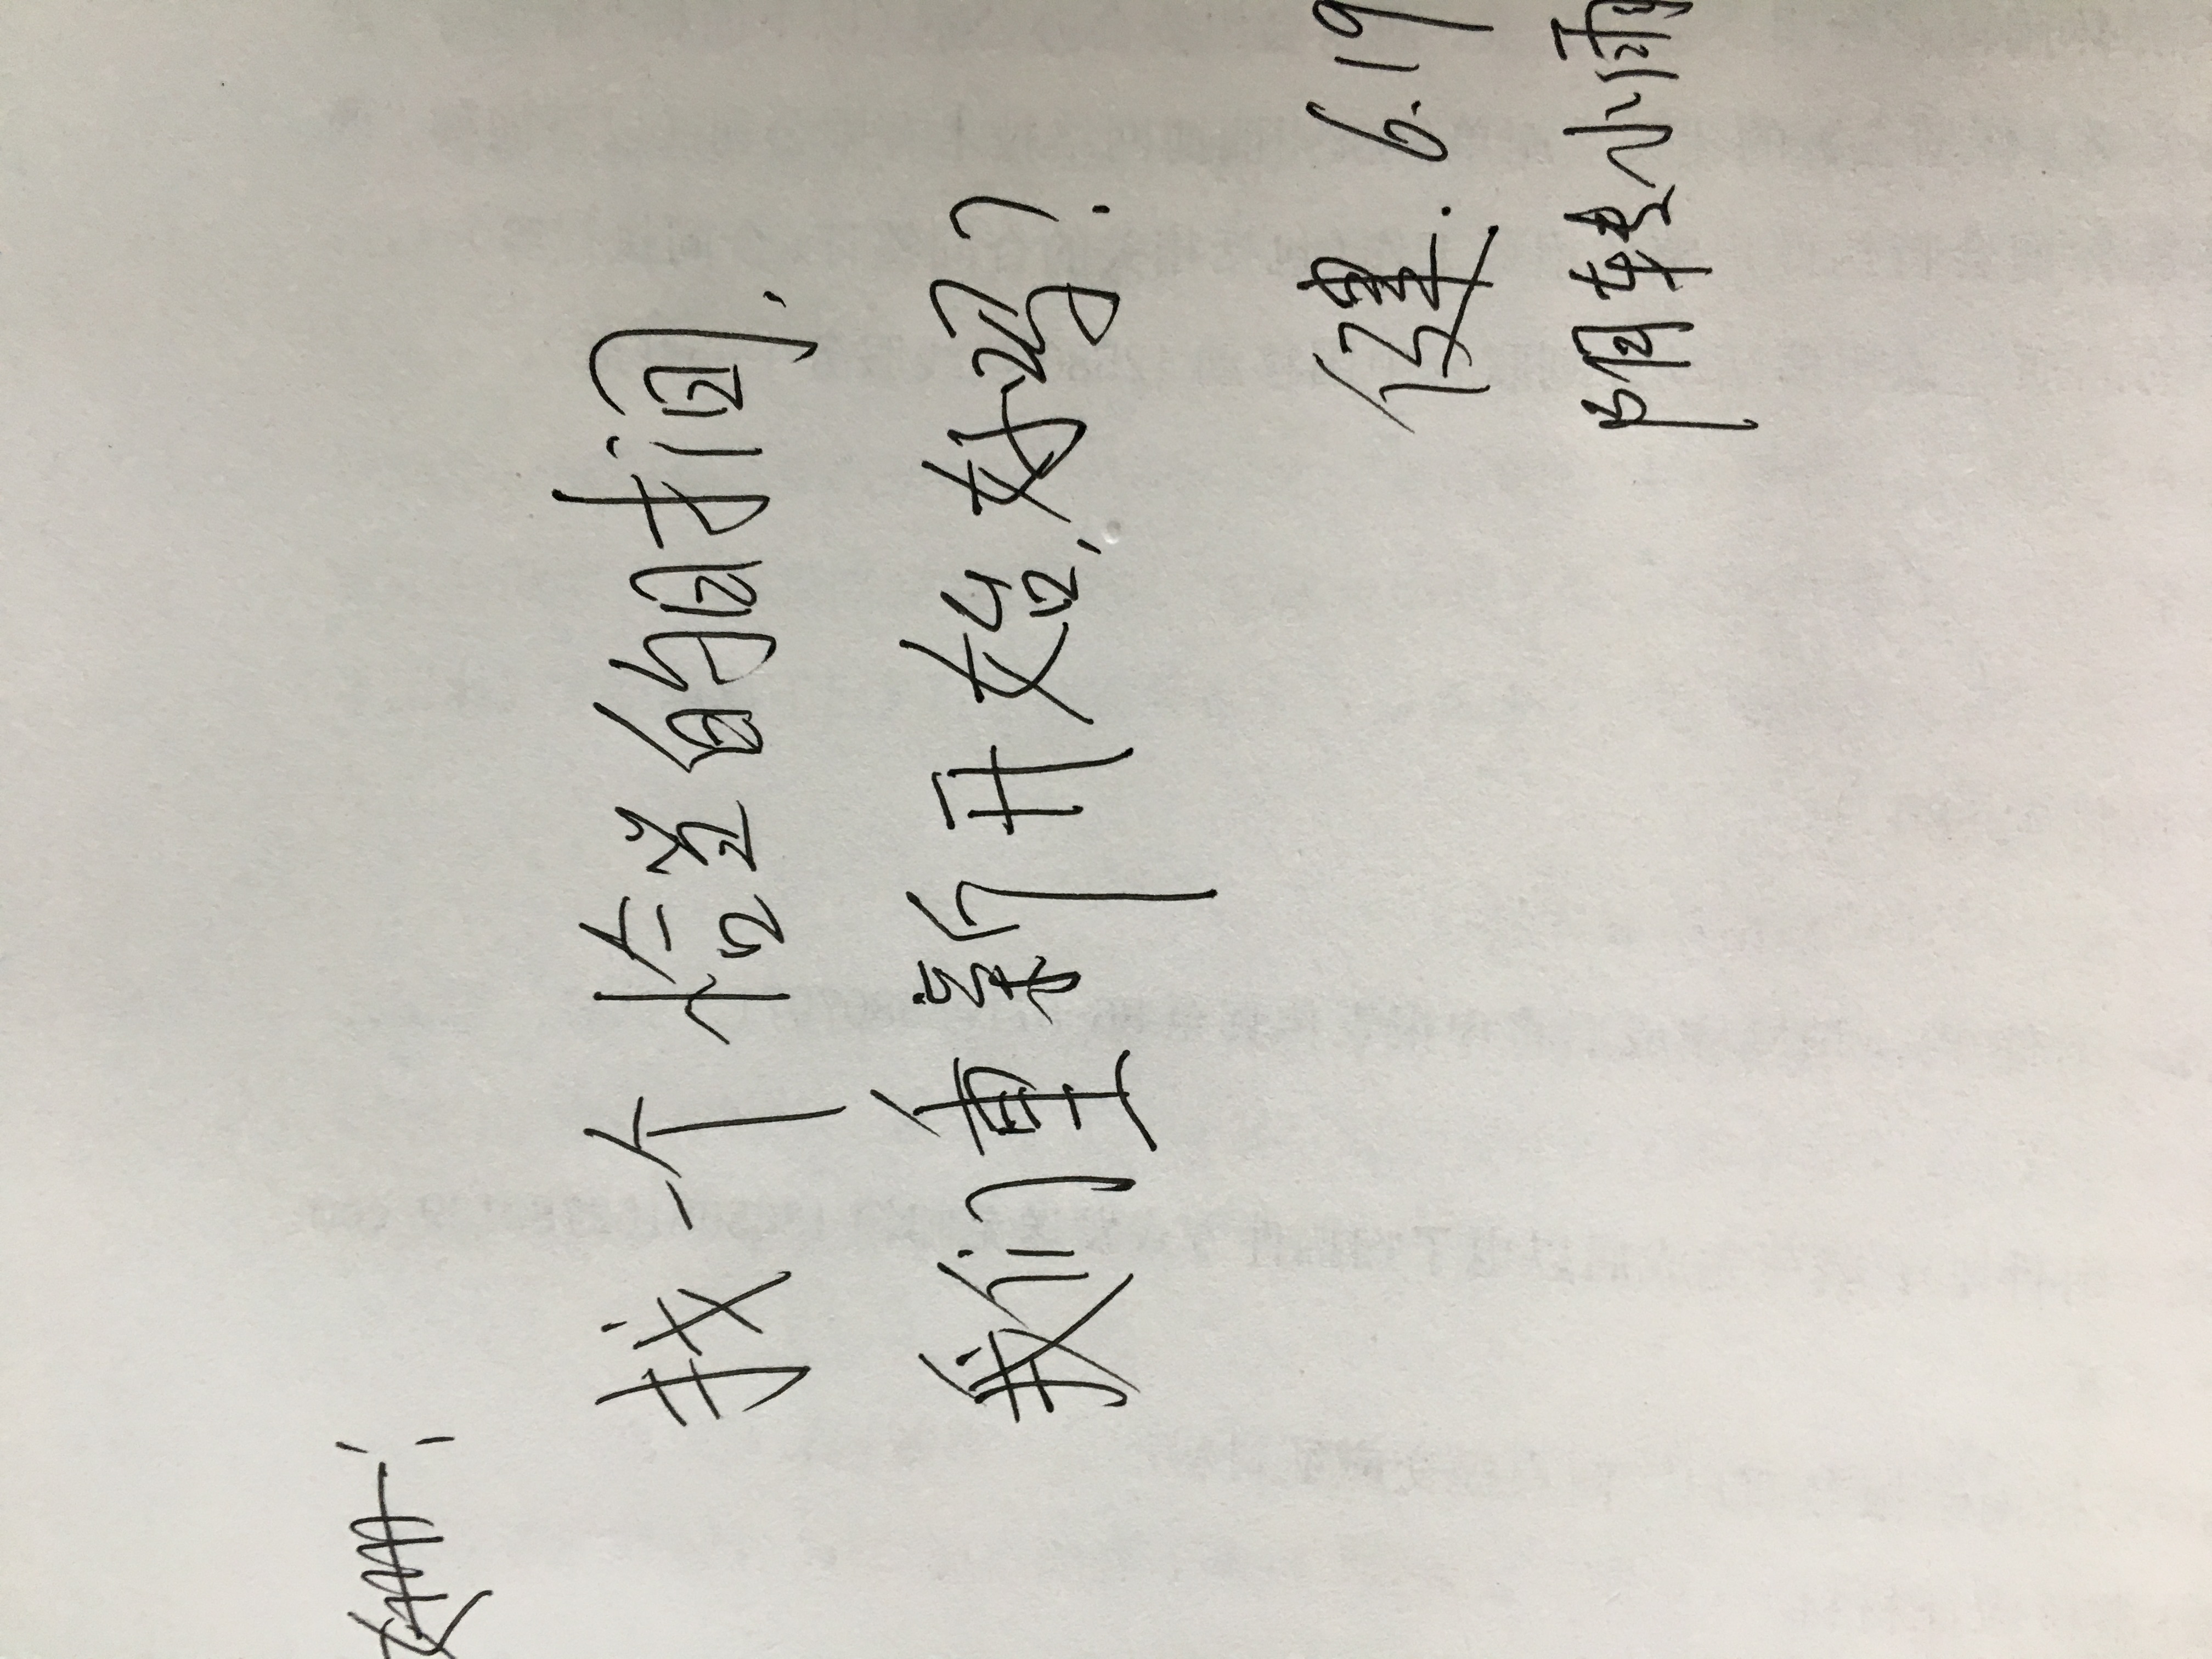 姗：
找一个恰当的时间，
我们重新开始，好吗？
健．6.19
阴转小雨